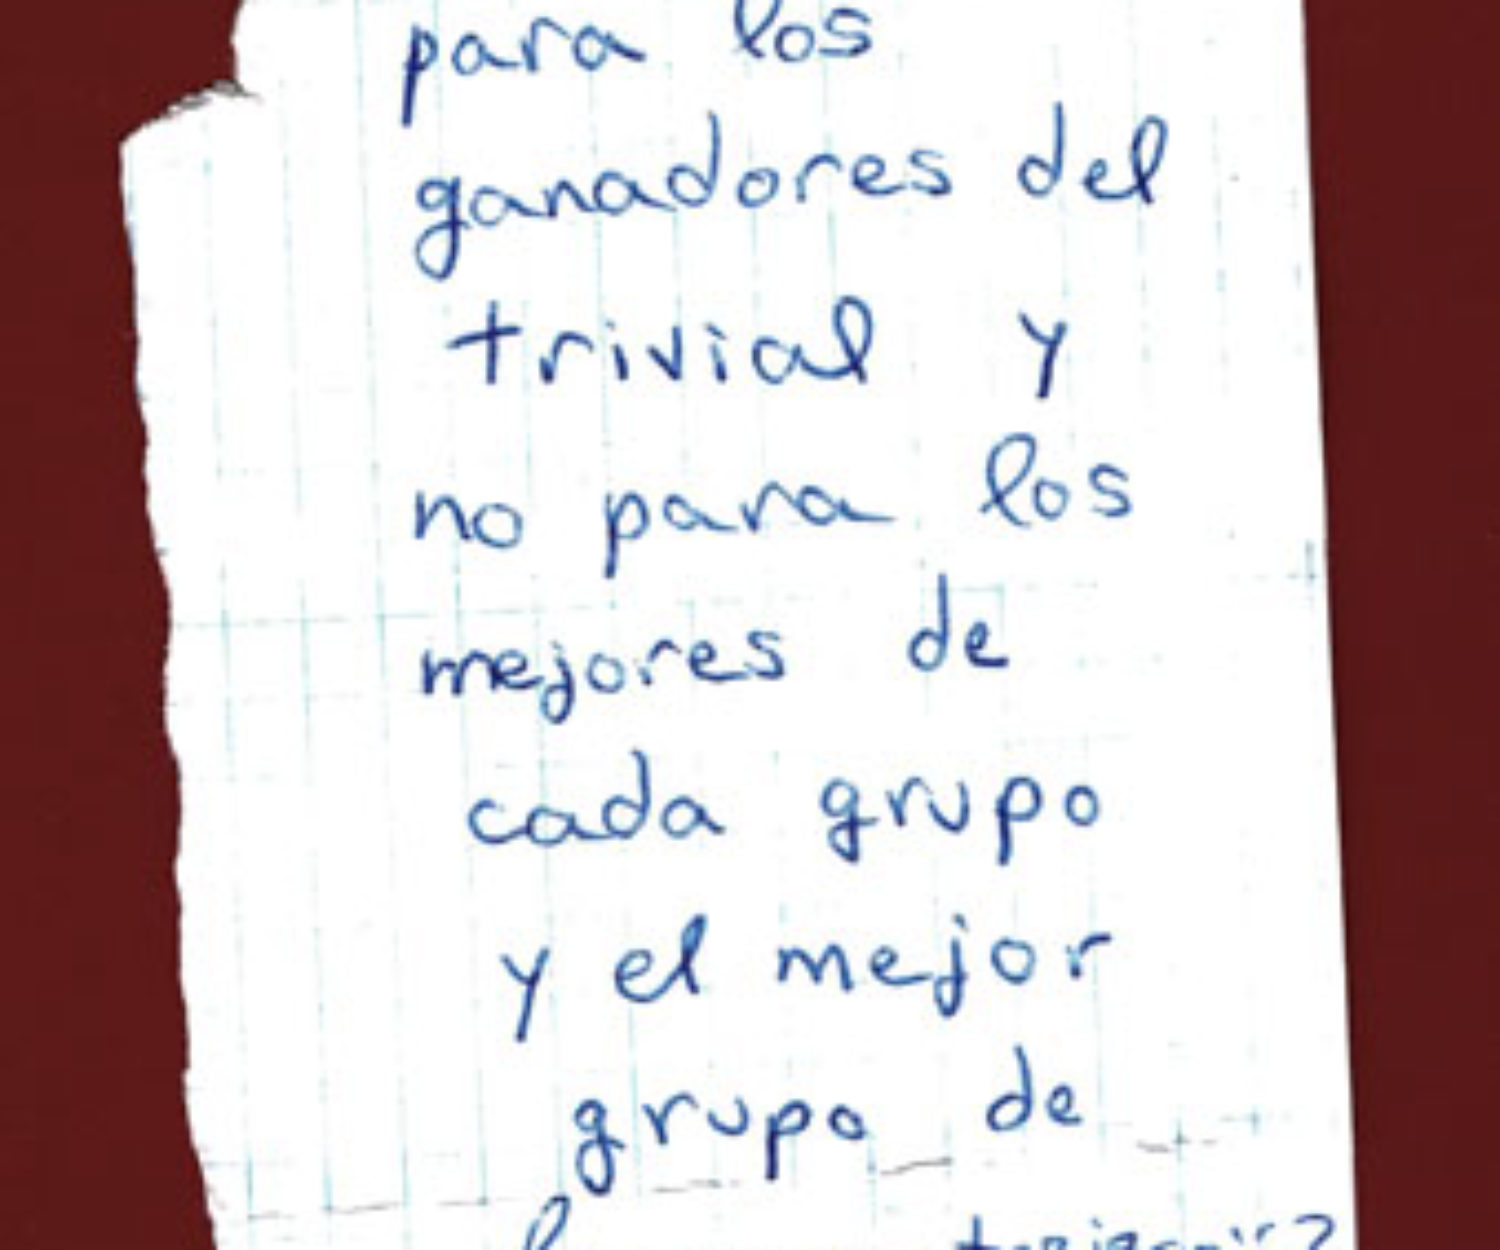 para los
ganadores del
trivial y
no para los
mejores de
cada grupo
y el mejor
grupo de